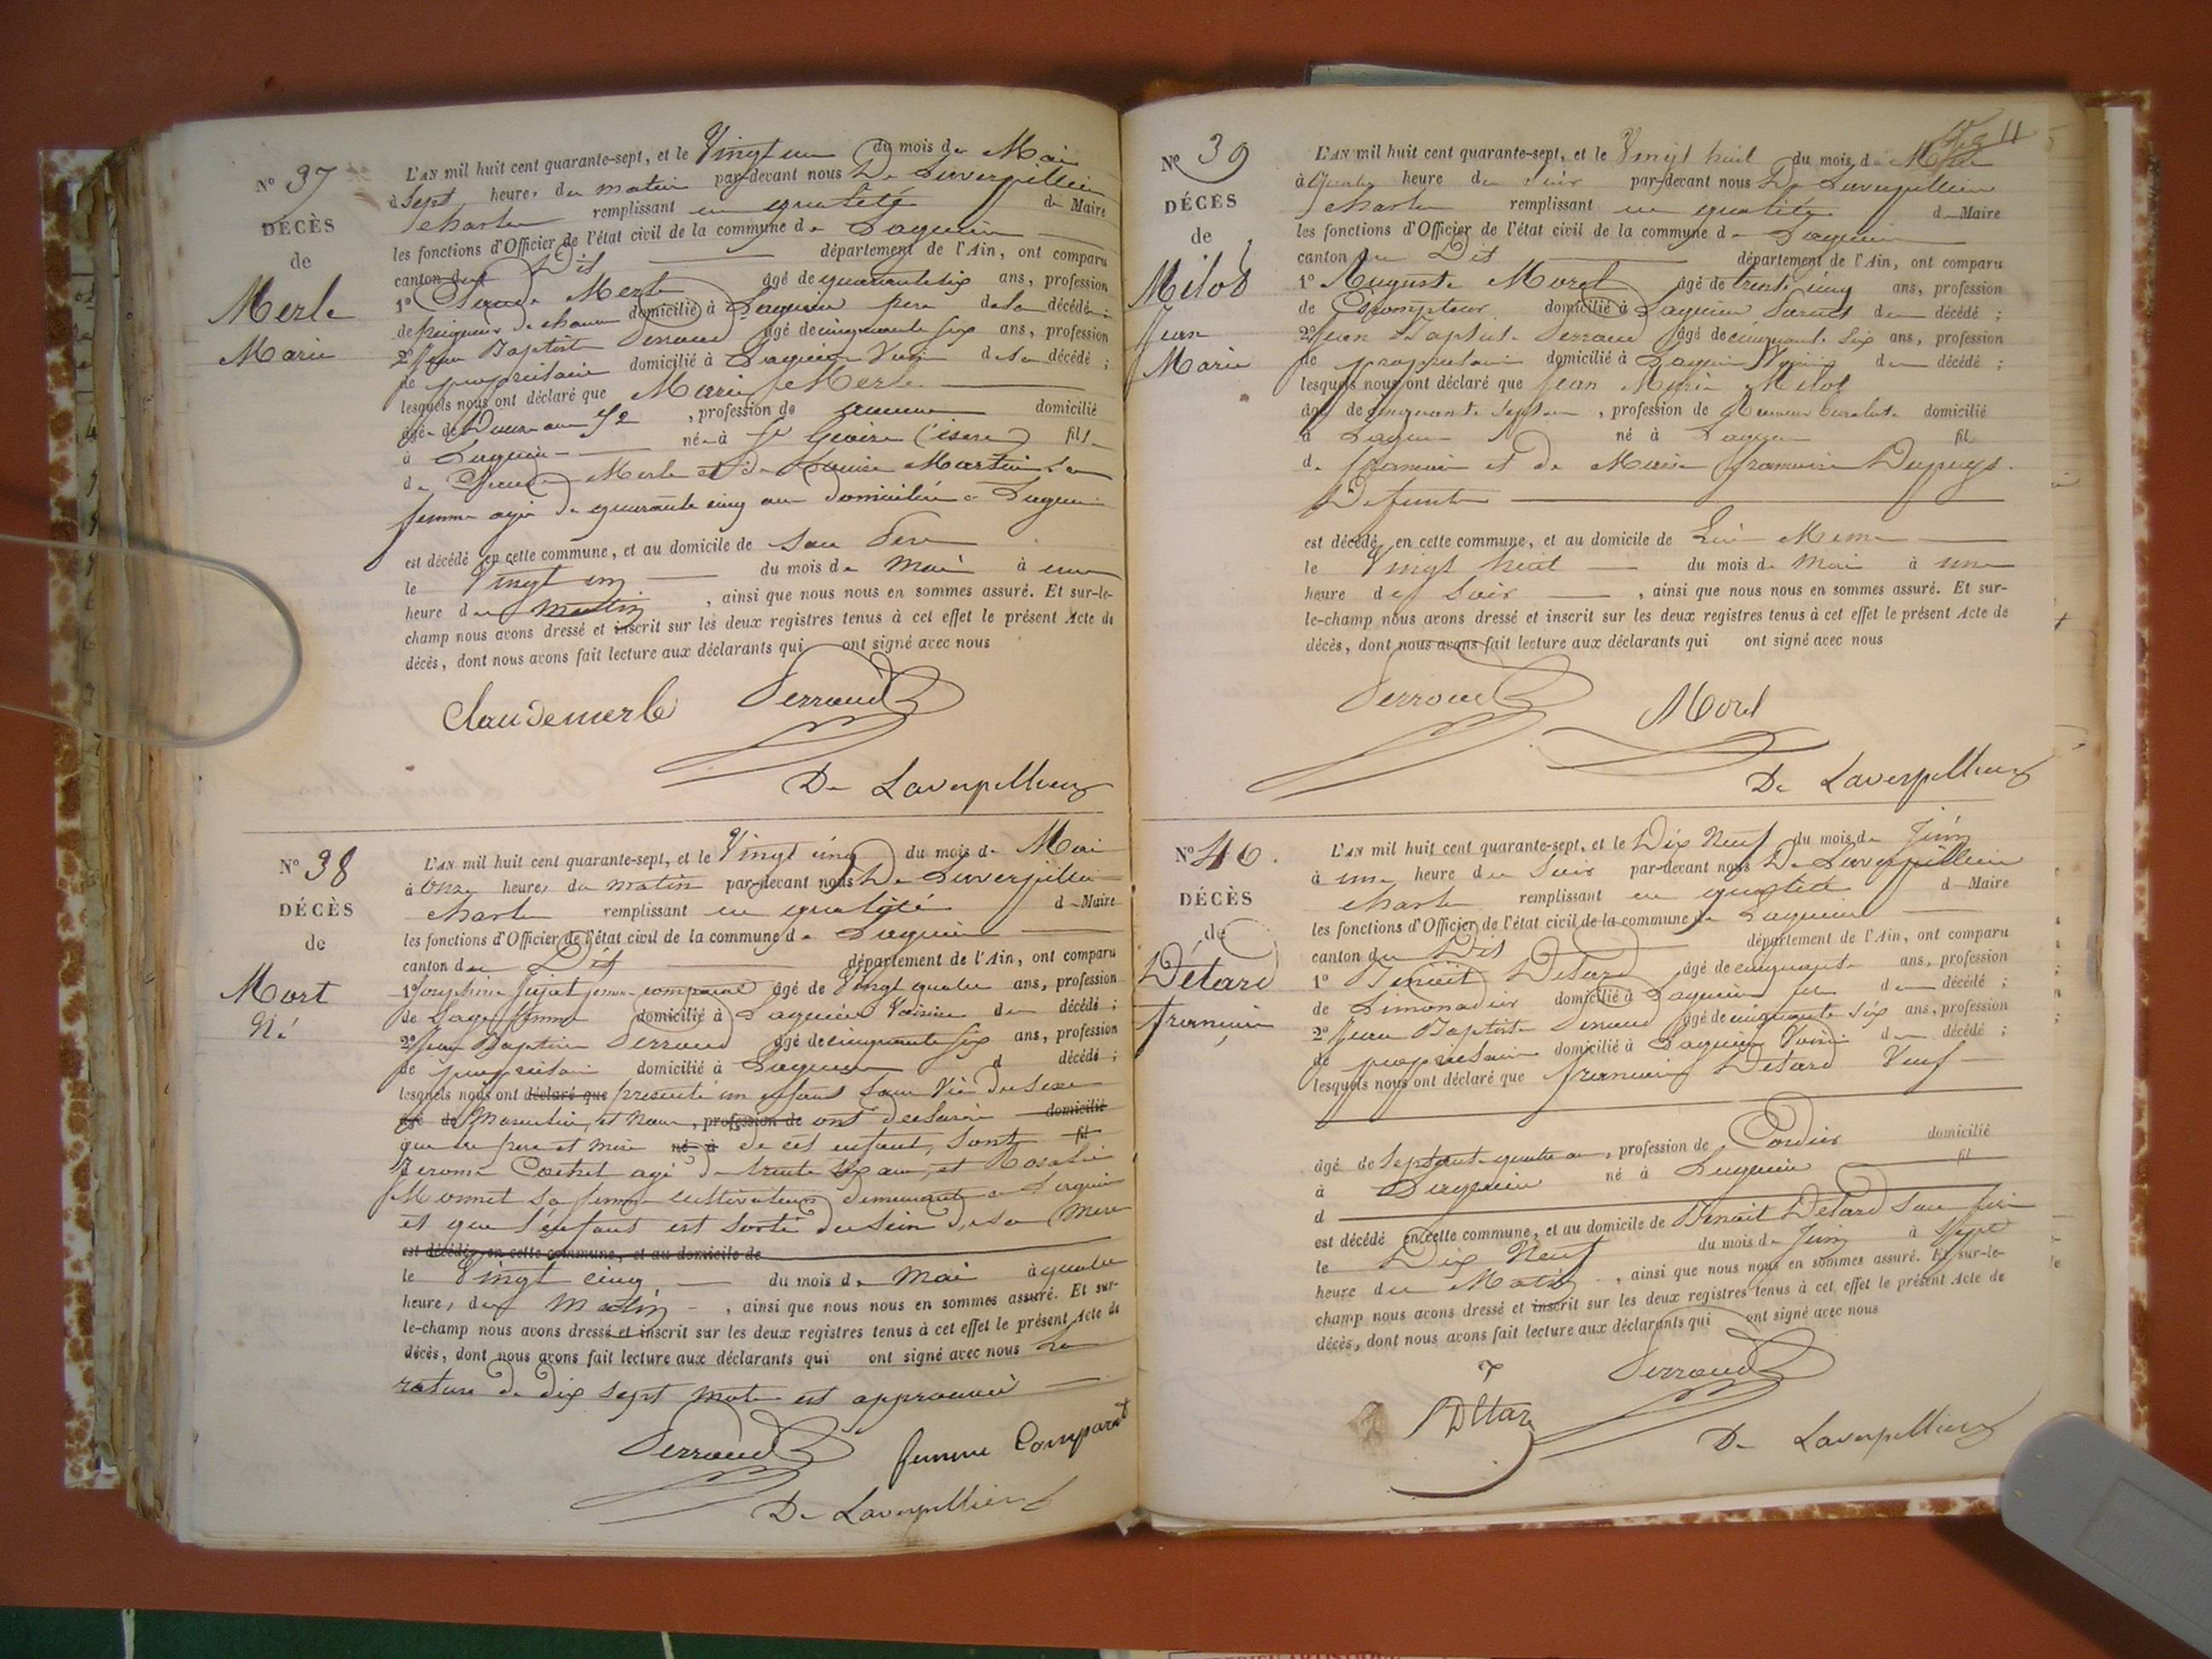 N° 37
DÉCÈS
de
Merle
Marie
L'AN mil huit cent quarante-sept, et le Vingt un du mois de Mai
à Sept heure, du matin par-devant nous De Laverpillier
Charles remplissant en qualité de Maire
les fonctions d'Officier de l'état civil de la commune de Lagnieu
canton du Dit département de l'Ain, ont comparu
1° Claude Merle âgé de quarante six ans, profession
de peigneur de chanvre domicilié à Lagnieu pere de la décédée
2° Jean Baptiste Perraud âgé de cinquante six ans, profession
de propriétaire domicilié à Lagnieu Voisin de la décédé ;
lesquels nous ont déclaré que Marie Merle
âgé de Douze ans 1/2, profession de aucune domicilié
à Lagnieu née à St Geoire (isere) fille
de Claude Merle et de Louise Martin sa
femme agée de quarante cinq ans domiciliée a Lagnieu
est décédé en cette commune, et au domicile de son Pere
le Vingt un du mois de Mai à une
heure du Matin, ainsi que nous nous en sommes assuré. Et sur-le-
champ nous avons dressé et inscrit sur les deux registres tenus à cet effet le présent Acte de
décès, dont nous avons fait lecture aux déclarants qui ont signé avec nous
Claudemerle Perraud
De Laverpillier
N° 38
DÉCÈS
de
Mort
Né
L'AN mil huit cent quarante-sept, et le Vingt cinq du mois de Mai
à Onze heures du matin par-devant nous De Laverpillier
Charles remplissant en qualité de Maire
les fonctions d'Officier de l'état civil de la commune de Lagnieu
canton du Dit département de l'Ain, ont comparu
1° Josephine Jujat femme Comparat âgé de Vingt quatre ans, profession
de Sage femme domicilié à Lagnieu Voisine du décédé ;
2° Jean Baptiste Perraud âgé de cinquante six ans, profession
de propriétaire domicilié à Lagnieu d décédé ;
lesquels nous ont déclaré que presenté un enfant Sans Vie du Sexe
âgé de Masculin, et nous, profession de ont declaré domicilié
que les pere et mere né à de cet enfant, sont fil
Jerome Cottret agé de trente six ans, et Rosalie
Monnet sa femme cultivateurs demeurant a Lagnieu
et que l'enfant est sorti du sein de sa Mere
est décédé, en cette commune, et au domicile de
le Vingt cinq du mois de Mai à quatre
heure, du Matin, ainsi que nous nous en sommes assuré. Et sur-
le-champ nous avons dressé et inscrit sur les deux registres tenus à cet effet le présent Acte de
décès, dont nous avons fait lecture aux déclarants qui ont signé avec nous La
rature de dix sept mots est approuvée
Perraud femme Comparat
De Laverpillier
11
N° 39
DÉCÈS
de
Milod
Jean
Marie
L'AN mil huit cent quarante-sept, et le Vingt huit du mois de Mai
à quatre heure du Soir par-devant nous De Laverpillier
Charles remplissant en qualité de Maire
les fonctions d'Officier de l'état civil de la commune de Lagnieu
canton du Dit département de l'Ain, ont comparu
1° Auguste Morel âgé de trente cinq ans, profession
de Escompteur domicilié à Lagnieu Parent du décédé ;
2° Jean Baptiste Perraud âgé de cinquante six ans, profession
de propriétaire domicilié à Lagnieu Voisin du décédé ;
lesquels nous ont déclaré que Jean Marie Milod
âgé de cinquante Sept ans, profession de domicilié
à Lagnieu né à Lagnieu fil
de François et de Marie Françoise Dupuys
Defunts
est décédé, en cette commune, et au domicile de Lui Meme
le Vingt huit du mois de Mai à une
heure du Soir, ainsi que nous nous en sommes assuré. Et sur-
le-champ nous avons dressé et inscrit sur les deux registres tenus à cet effet le présent Acte de
décès, dont nous avons fait lecture aux déclarants qui ont signé avec nous
Perraud Morel
De Laverpillier
N° 40.
DÉCÈS
de
Détard
François
L'AN mil huit cent quarante-sept, et le Dix Neuf du mois de Juin
à une heure du Soir par-devant nous De Laverpillier
Charles remplissant en qualité de Maire
les fonctions d'Officier de l'état civil de la commune de Lagnieu
canton du Dit département de l'Ain, ont comparu
1° Benoit Détard âgé de cinquante ans, profession
de Limonadier domicilié à Lagnieu fils du décédé ;
2° Jean Baptiste Perraud âgé de cinquante six ans, profession
de propriétaire domicilié à Lagnieu Voisin du décédé ;
lesquels nous ont déclaré que François Détard Veuf
âgé de Septante quatre ans, profession de Cordier domicilié
à Lagnieu né à Lagnieu fil
d
est décédé en cette commune, et au domicile de Benoit Détard Son fils
le Dix Neuf du mois de Juin à Sept
heure du Matin, ainsi que nous nous en sommes assuré. Et sur-le-
champ nous avons dressé et inscrit sur les deux registres tenus à cet effet le présent Acte de
décès, dont nous avons fait lecture aux déclarants qui ont signé avec nous
Perraud
Détar
De Laverpillier